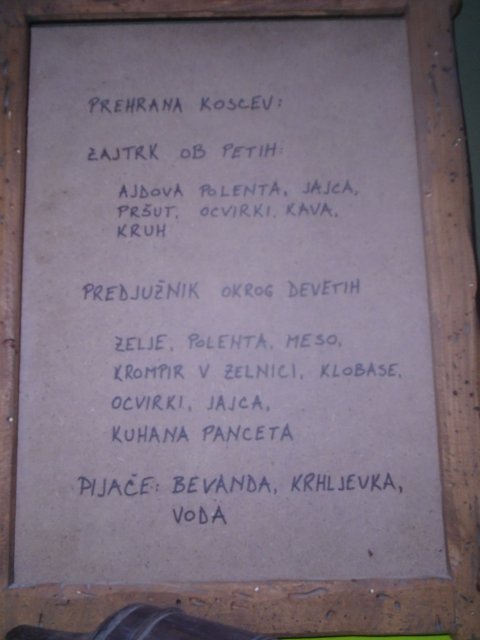 PREHRANA KOSCEV:
ZAJTRK OB PETIH:
AJDOVA POLENTA, JAJCA,
PRŠUT, OCVIRKI, KAVA,
KRUH
PREDJUŽNIK OKROG DEVETIH
ZELJE, POLENTA, MESO,
KROMPIR V ŽELNICI, KLOBASE,
OCVIRKI, JAJCA,
KUHANA PANCETA
PIJAČE: BEVANDA, KRHLJEVKA,
VODA